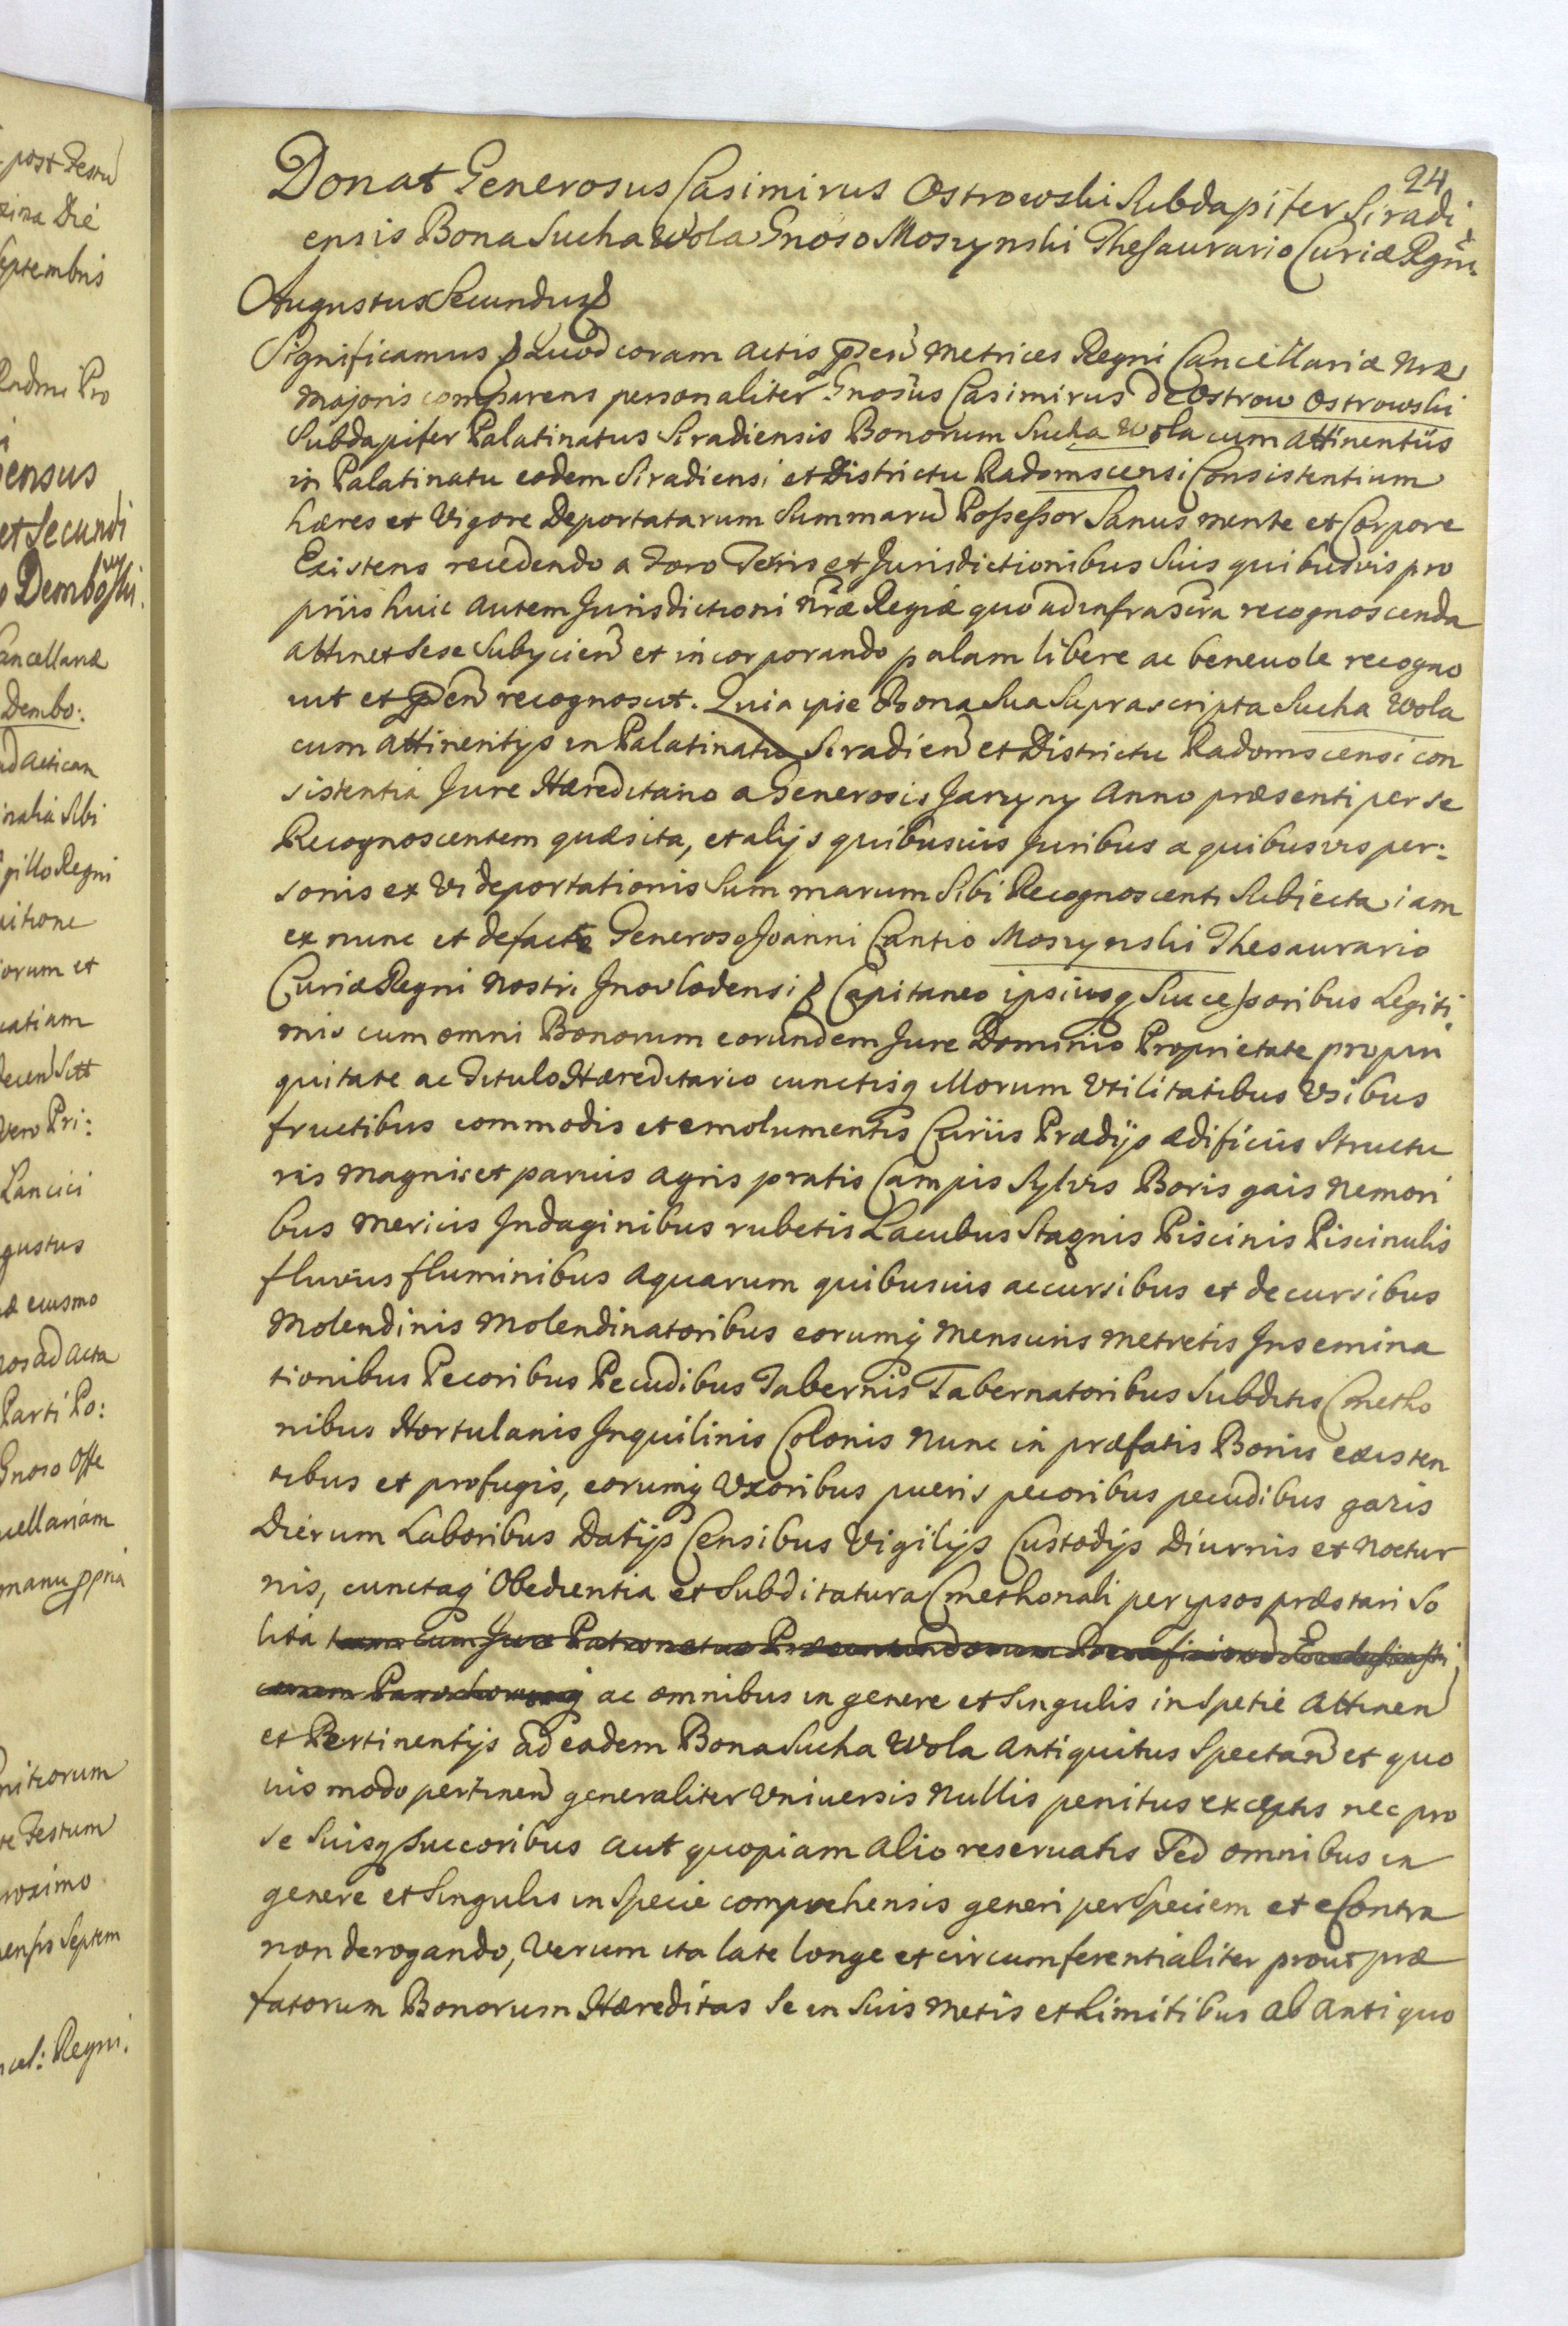 post Festu
xima Die
Septembris
Radmi Pro
ensus
et Secundi
Dembowski.
Cancellariæ
Dembo:
ad Actican
inalia Sibi
gillo Regni
uitione
orum et
uatiam
decen Sctt
vero Pri:
Lancici
gustus
æ eiusmo
nos ad Acta
Parti Po:
Gnoso Offe
cellariam
manu ppria
nitiorum
te Festum
roximo
ensis Septem
cel: Regni.
24
Donat Generosus Casimirus Ostrowski Subdapifer Siradi
ensis Bona Sucha Wola Gnoso Moszynski Thesaurario Curiæ Rgni
Augustus Secundus
Significamus Quod coram Actis pñ Metrices Regni Cancellariæ Nræ
Majoris comparens personaliter Gnosus Casimirus de Ostrow Ostrowski
Subdapifer Palatinatus Siradiensis Bonorum Sucha Wola cum Attinentiis
in Palatinatu eodem Siradiensi et Districtu Radomscensi Consistentium
hæres et Vigore Deportatarum Summaru Possessor Sanus mente et Corpore
Existens recedendo a Foro Terris et Jurisdictionibus Suis quibusvis pro
priis huic autem Jurisdictioni Nræ Regiæ quo ad infrascra recognoscenda
attinet Sese Subycien et incorporando palam libere ac beneuole recogno
uit et pñ recognoscit. Quia ipse Bona Sua Suprascripta Sucha Wola
cum Attinentijs in Palatinatu Siradien et Districtu Radomscensi con
sistentia Jure Hæreditario a Generosis Jarzyny Anno præsenti per se
Recognoscentem quæsita, et alijs quibusuis Juribus a quibusvis per:
sonis ex Vi deportationis Summarum Sibi Recognoscenti Subiecta iam
ex nunc et defacto Generoso Joanni Cantio Moszynski Thesaurario
Curiæ Regni Nostri Jnovlodensi Capitaneo ipsiusq Successoribus Legiti
mis cum omni Bonorum eorundem Jure Dominio Proprietate propin
quitate ac Titulo Hæreditario cunctisq illorum Vtilitatibus Vsibus
fructibus commodis et emolumentis Curiis Prædijs ædificiis Structu
ris magnis et paruis agris pratis Campis Sylvis Boris gais Nemori
bus mericis Jndaginibus rubetis Lacubus Stagnis Piscinis Piscinulis
fluviis fluminibus Aquarum quibusuis accursibus et decursibus
Molendinis Molendinatoribus eorumq Mensuris metretis Jnsemina
tionibus Pecoribus Pecudibus Tabernis Tabernatoribus Subditis Cmetho
nibus Hortulanis Jnquilinis Colonis Nunc in præfatis Bonis existen
tibus et profugis, eorumq Vxoribus pueris pecoribus pecudibus gazis
Dierum Laboribus Datijs Censibus Vigilijs Custodijs Diurnis et Noctur
nis, cunctaq Obedientia et Subditatura Cmethonali per ipsos præstari So
lita cum Jure Patronatus
ac omnibus in genere et Singulis in Spetie Attinen
et Pertinentijs ad eadem Bona Sucha Wola Antiquitus Spectan et quo
uis modo pertinen generaliter Vniuersis Nullis penitus exceptis nec pro
se Suisq Succoribus aut quopiam alio reseruatis Sed omnibus in
genere et Singulis in Specie comprehensis generi per Speciem et e Contra
non derogando, Verum ita late longe et circumferentialiter prout præ
fatorum Bonorum Hæreditas Se in Suis Metis et Limitibus ab Antiquo